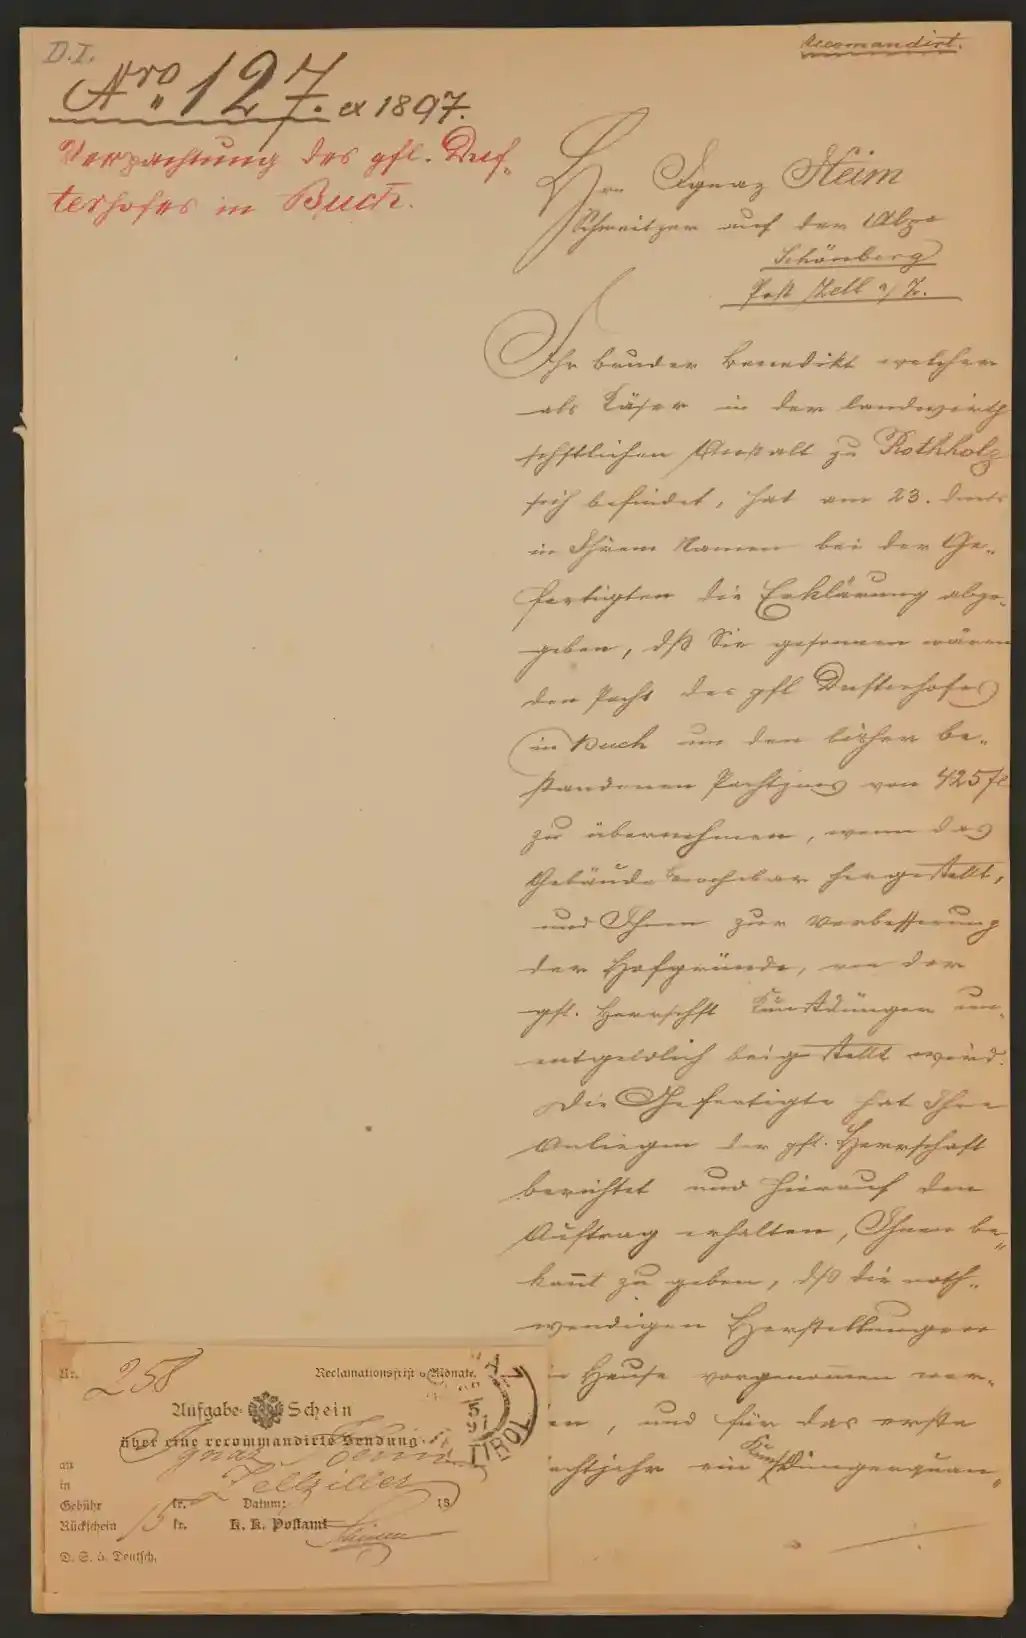 D.I.
Nro 127. ex 1897.
Recomandirt.
Verpachtung des gfl. Duf-
terhofes in Buch.
Hrn Ignaz Heim
Schweitzer auf der Alpe
Schönberg
Post Zell a/Z.
Ihr bruder Benedikt welcher
als Käser in der landwirth
schftlichen Anstalt zu Rothholz
sich befindet, hat am 23. dmts
in Ihrem Namen bei der Ge-
fertigten die Erklärung abge-
geben, dß Sie gesonnen wären
den Pacht des gfl Dufterhofes
in Buch um den bisher be-
standenen Pachtzins von 425 fl
zu übernehmen, wenn das
Gebäude wohnbar hergestellt,
und Ihnen zur Verbesserung
der Hofgründe, von der
gfl. Herrschft Kunstdünger un-
entgeldlich beigestellt wird.
Die Gefertigte hat Ihr
Anliegen der gfl. Herrschaft
berichtet und hierauf den
Auftrag erhalten, Ihnen be-
kannt zu geben, dß die noth-
wendigen Herstellungen
Hause vorgenommen wer-
en, und für das erste
achtjahr ein Kunstdüngerquan-
Nr. 258 Reclamationsfrist 6 Monate.
Aufgabe-Schein
über eine recommandirte Sendung
an Ignaz Heim
in Zell Ziller
Gebühr kr. Datum: 18
Rückschein 15 kr. K. K. Postamt
D. S. 5. Deutsch.
TIROL